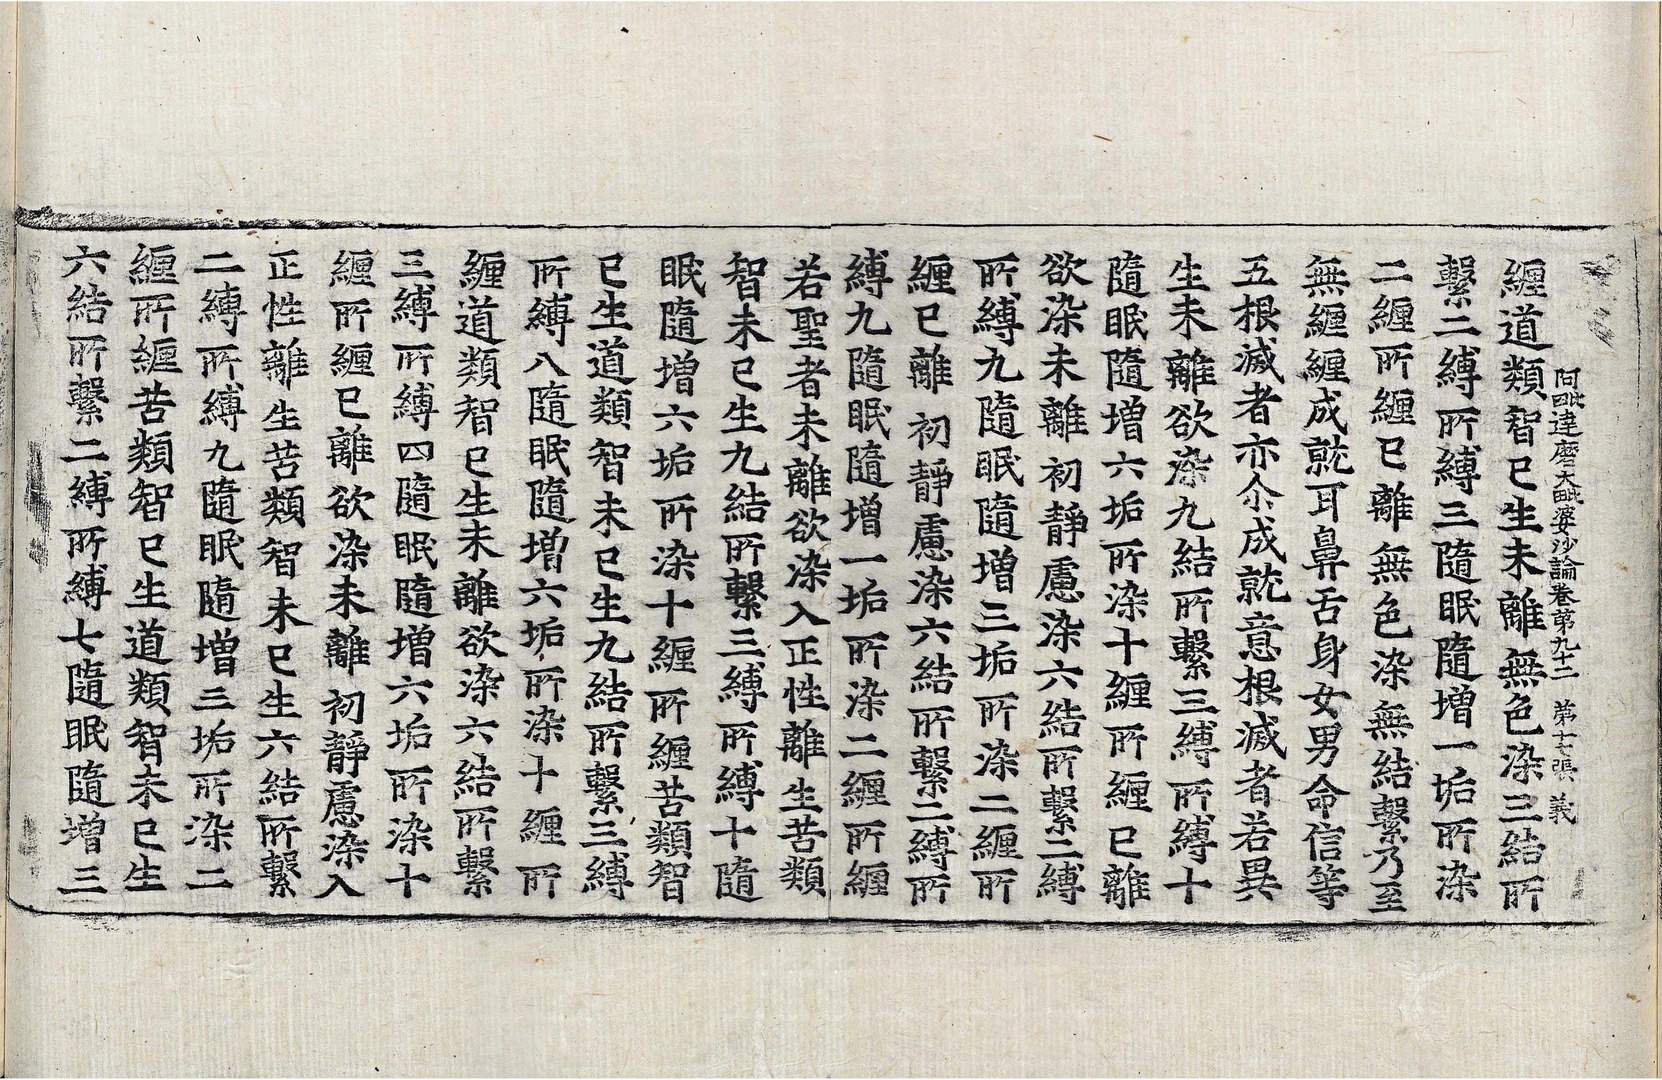 阿毗達磨大毗婆沙論卷第九十二 第十七張 義
纏道類智已生未離無色染三結所
繫二縛所縛三隨眠隨增一垢所染
二纏所纏已離無色染無結繫乃至
無纏纏成就耳鼻舌身女男命信等
五根滅者亦尒成就意根滅者若異
生未離欲染九結所繫三縛所縛十
隨眠隨增六垢所染十纏所纏已離
欲染未離初靜慮染六結所繫二縛
所縛九隨眠隨增三垢所染二纏所
纏已離初靜慮染六結所繫二縛所
縛九隨眠隨增一垢所染二纏所纏
若聖者未離欲染入正性離生苦類
智未已生九結所繫三縛所縛十隨
眠隨增六垢所染十纏所纏苦類智
已生道類智未已生九結所繫三縛
所縛八隨眠隨增六垢所染十纏所
纏道類智已生未離欲染六結所繫
三縛所縛四隨眠隨增六垢所染十
纏所纏已離欲染未離初靜慮染入
正性離生苦類智未已生六結所繫
二縛所縛九隨眠隨增三垢所染二
纏所纏苦類智已生道類智未已生
六結所繫二縛所縛七隨眠隨增三